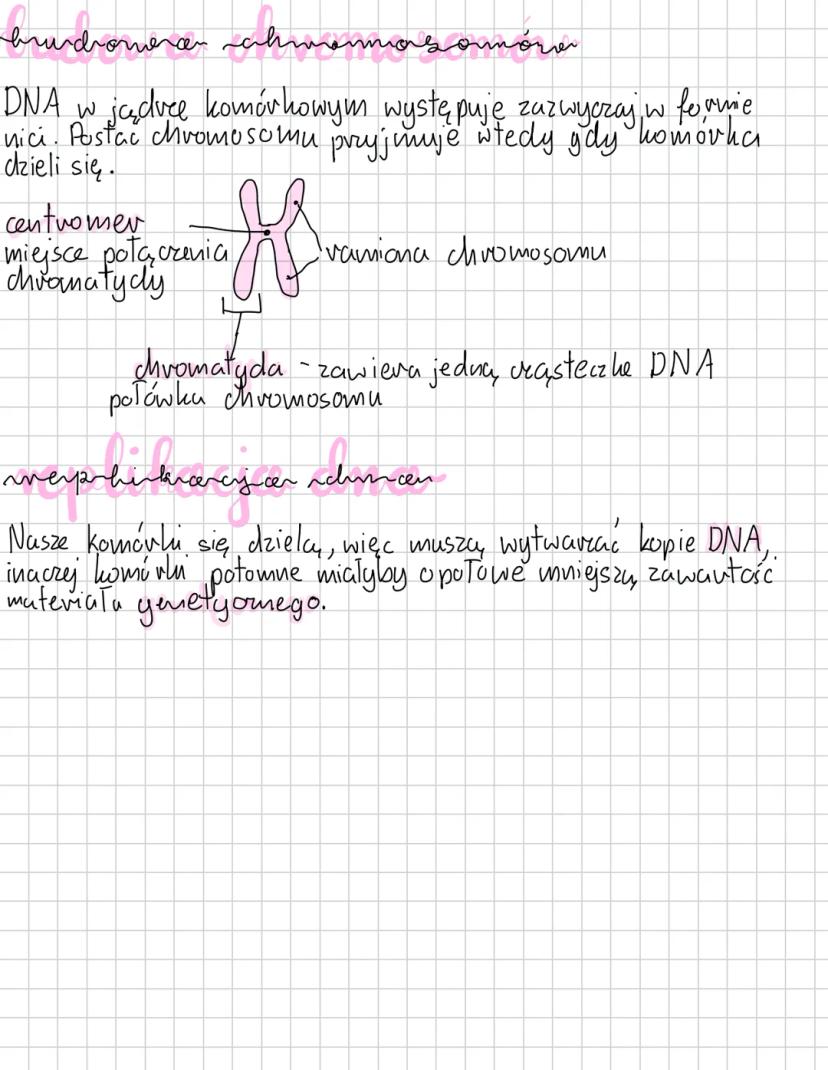 budowa chromosomów
DNA w jądrze komórkowym występuje zazwyczaj w formie
nici. Postać chromosomu przyjmuje wtedy gdy komórka
dzieli się.
centromer
miejsce połączenia
chromatydy
ramiona chromosomu
chromatyda - zawiera jedną cząsteczkę DNA
połówka chromosomu
replikacja dna
Nasze komórki się dzielą, więc muszą wytwarzać kopie DNA,
inaczej komórki potomne miałyby o połowę mniejszą zawartość
materiału genetycznego.